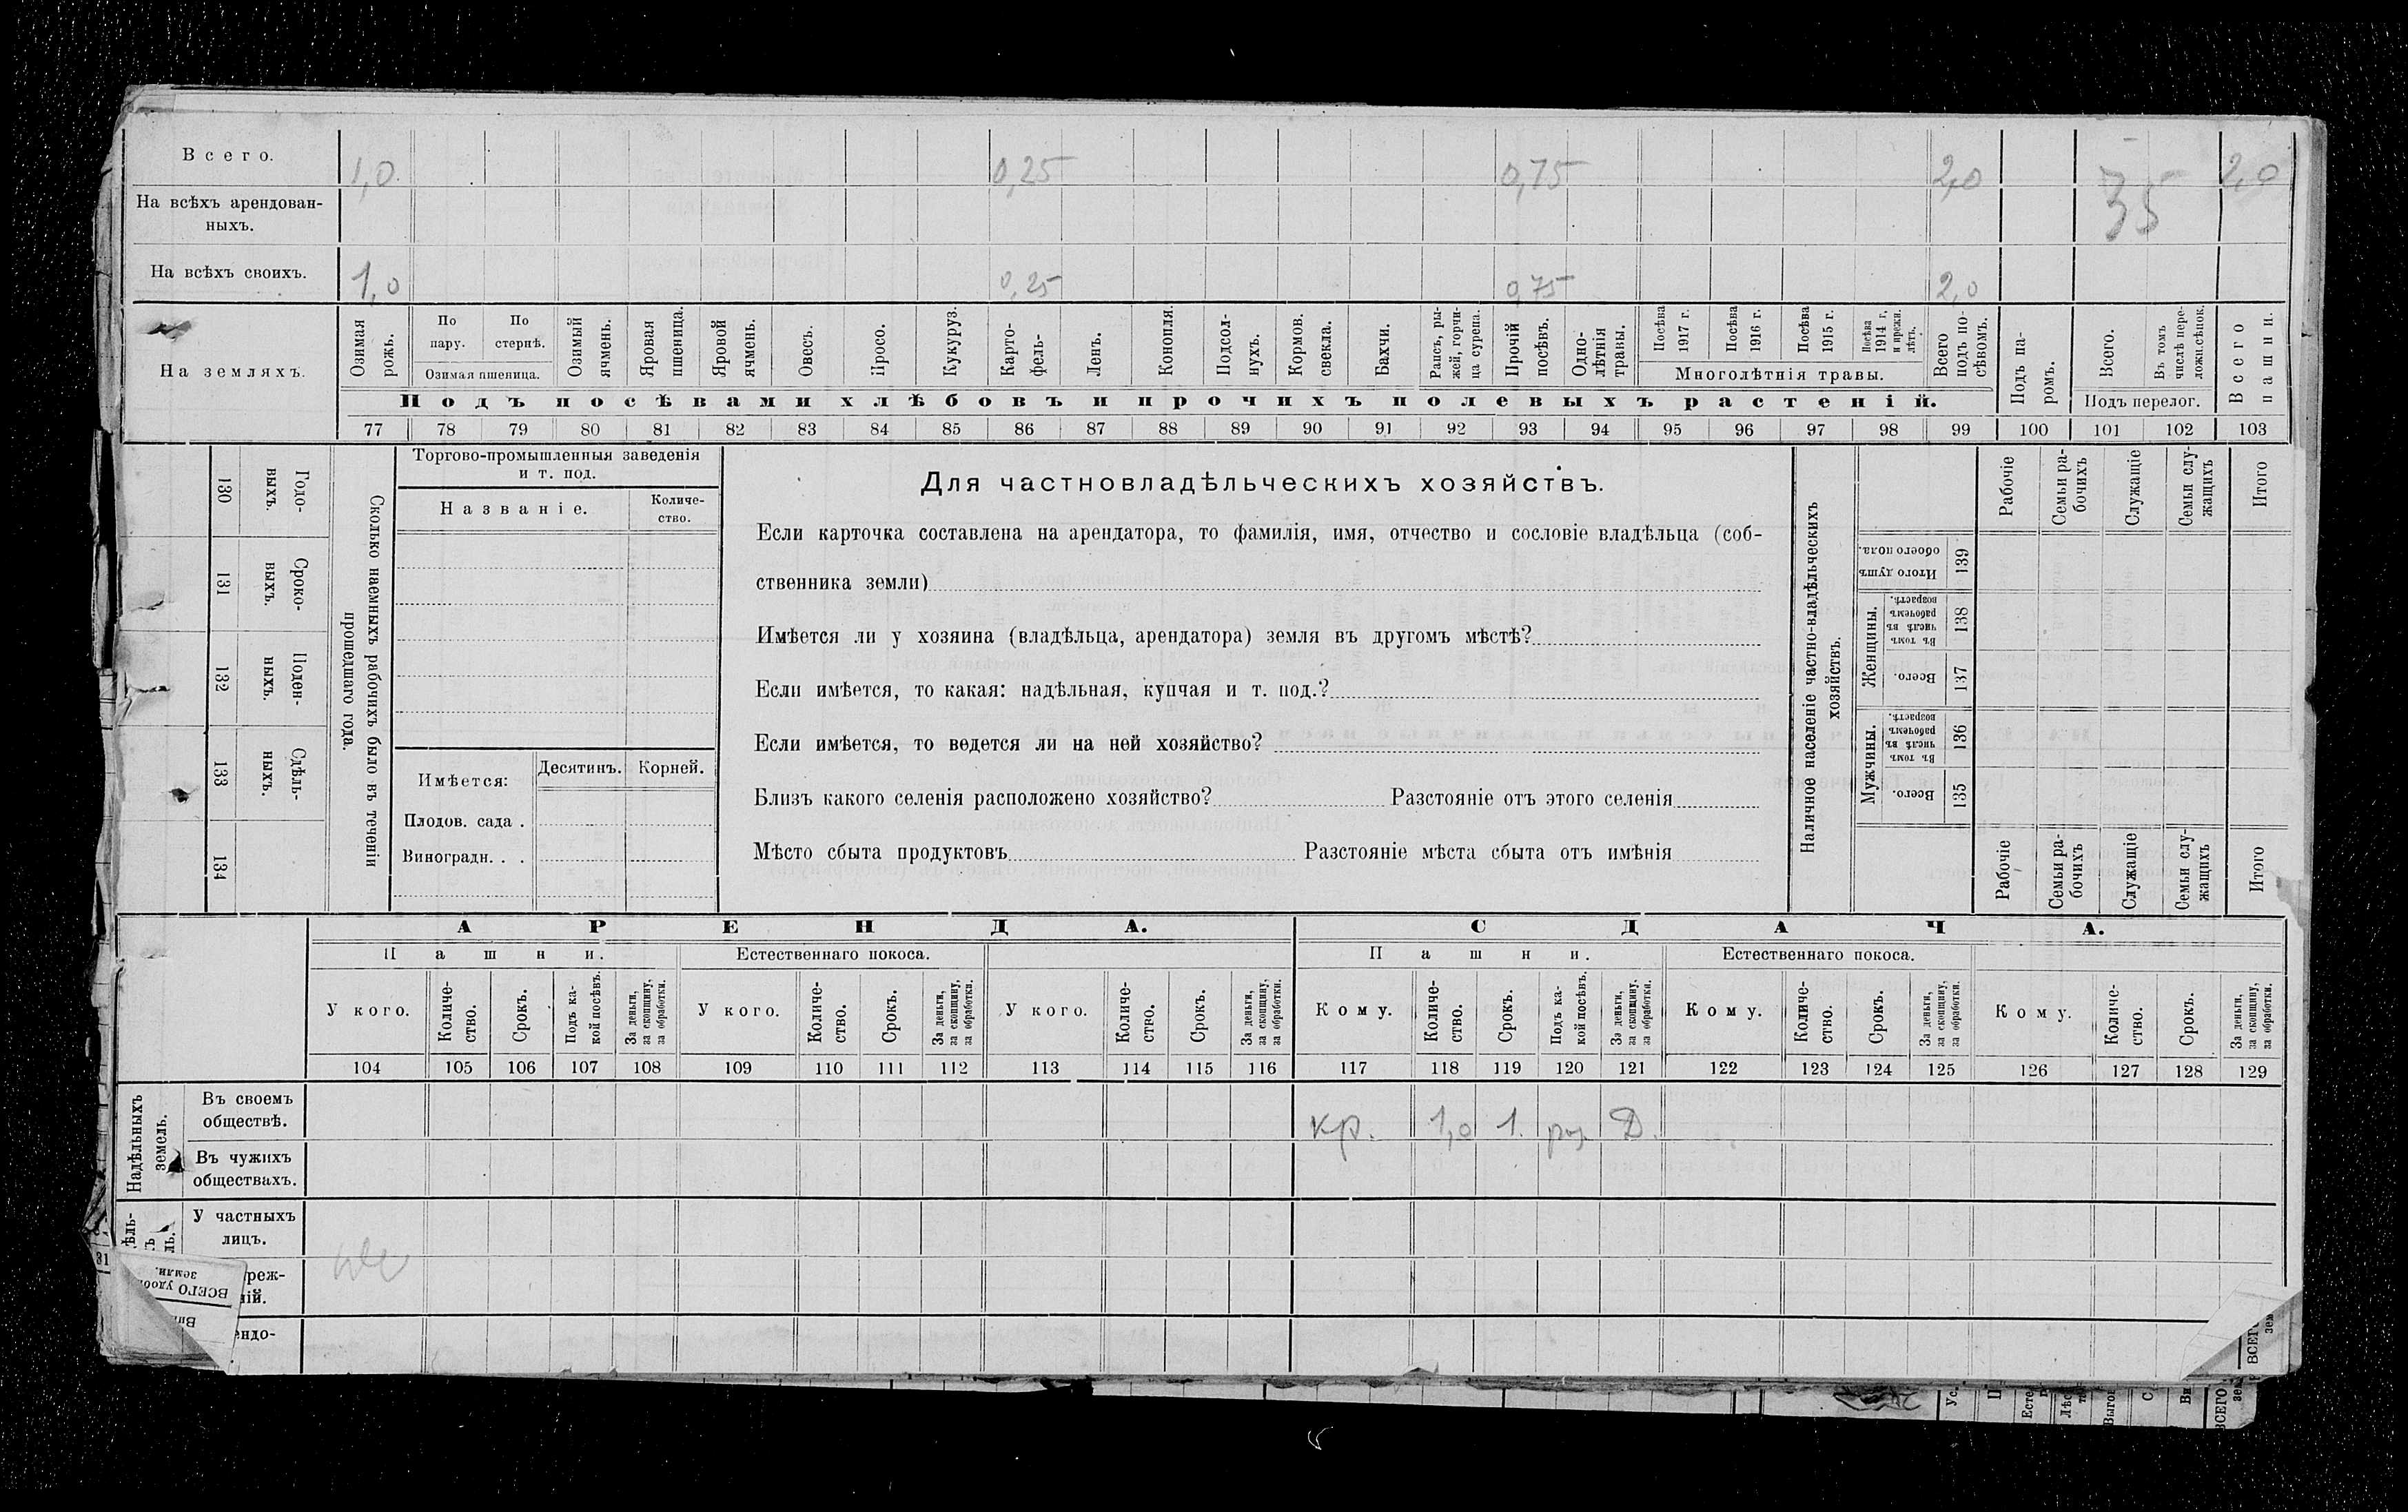 Всего. 1,0 0,25 0,75 2,0 35 2,0
На всѣхъ арендован-
ныхъ.
На всѣхъ своихъ. 1,0 0,25 0,75 2,0
На земляхъ.
Озимая рожь.
По пару.
По стернѣ.
Озимая пшеница.
Озимый ячмень.
Яровая пшеница.
Яровой ячмень.
Овесъ.
Просо.
Кукуруз.
Карто-
фель.
Ленъ.
Конопля.
Подсол-
нухъ.
Кормов. свекла.
Бахчи.
Рапсъ, ры-
жей, горчи-
ца сурепа.
Прочій посѣвъ.
Одно-
лѣтнія травы.
Посѣва 1917 г.
Посѣва 1916 г.
Посѣва 1915 г.
Посѣва 1914 г. и прежн. лѣтъ.
Многолѣтнія травы.
Всего подъ по-
сѣвомъ.
Подъ па-
ромъ.
Всего.
Въ томъ числѣ пере-
ложн. сѣнок.
Подъ перелог.
Всего пашни.
Подъ посѣвами хлѣбовъ и прочихъ полевыхъ растеній.
77 78 79 80 81 82 83 84 85 86 87 88 89 90 91 92 93 94 95 96 97 98 99 100 101 102 103
Сколько наемныхъ рабочихъ было въ теченіи
прошедшаго года.
Годо-
выхъ.
130
Сроко-
выхъ.
131
Поден-
ныхъ.
132
Сдѣль-
ныхъ.
133
134
Торгово-промышленныя заведенія
и т. под.
Названіе.
Количе-
ство.
Имѣется:
Десятинъ. Корней.
Плодов. сада .
Виноградн. . .
Для частновладѣльческихъ хозяйствъ.
Если карточка составлена на арендатора, то фамилія, имя, отчество и сословіе владѣльца (соб-
ственника земли)
Имѣется ли у хозяина (владѣльца, арендатора) земля въ другомъ мѣстѣ?
Если имѣется, то какая: надѣльная, купчая и т. под.?
Если имѣется, то ведется ли на ней хозяйство?
Близъ какого селенія расположено хозяйство? Разстояніе отъ этого селенія
Мѣсто сбыта продуктовъ Разстояніе мѣста сбыта отъ имѣнія
Наличное населеніе частно-владѣльческихъ
хозяйствъ.
Рабочіе
Семьи ра-
бочихъ
Служащіе
Семьи слу-
жащихъ
Итого
Итого душъ обоего пола.
139
Женщины.
Въ томъ числѣ въ рабочемъ возрастѣ.
138
Всего.
137
Мужчины.
Въ томъ числѣ въ рабочемъ возрастѣ.
136
Всего.
135
Рабочіе
Семьи ра-
бочихъ
Служащіе
Семьи слу-
жащихъ
Итого
АРЕНДА. СДАЧА.
Пашни. Естественнаго покоса. Пашни. Естественнаго покоса.
У кого.
Количе-
ство.
Срокъ.
Подъ ка-
кой посѣвъ.
За деньги, за скопщину, за обработки.
У кого.
Количе-
ство.
Срокъ.
За деньги, за скопщину, за обработки.
У кого.
Количе-
ство.
Срокъ.
За деньги, за скопщину, за обработки.
Кому.
Количе-
ство.
Срокъ.
Подъ ка-
кой посѣвъ.
За деньги, за скопщину, за обработки.
Кому.
Количе-
ство.
Срокъ.
За деньги, за скопщину, за обработки.
Кому.
Количе-
ство.
Срокъ.
За деньги, за скопщину, за обработки.
104 105 106 107 108 109 110 111 112 113 114 115 116 117 118 119 120 121 122 123 124 125 126 127 128 129
Надѣльныхъ земель.
Въ своемъ
обществѣ.
кр. 1,0 1. Д.
Въ чужихъ
обществахъ.
У частныхъ
лицъ.
реж-
ній.
ендо-
ВСЕГО удоб
земли.